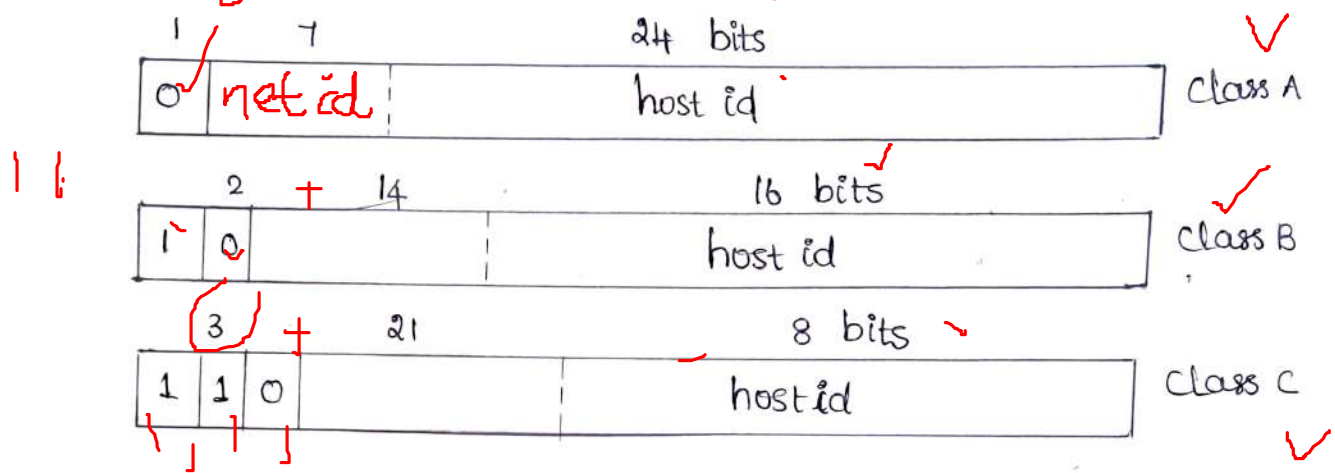 1 7 24 bits
0 net id host id Class A
2 + 14 16 bits
1 0 host id Class B
3 + 21 8 bits
1 1 0 host id Class C